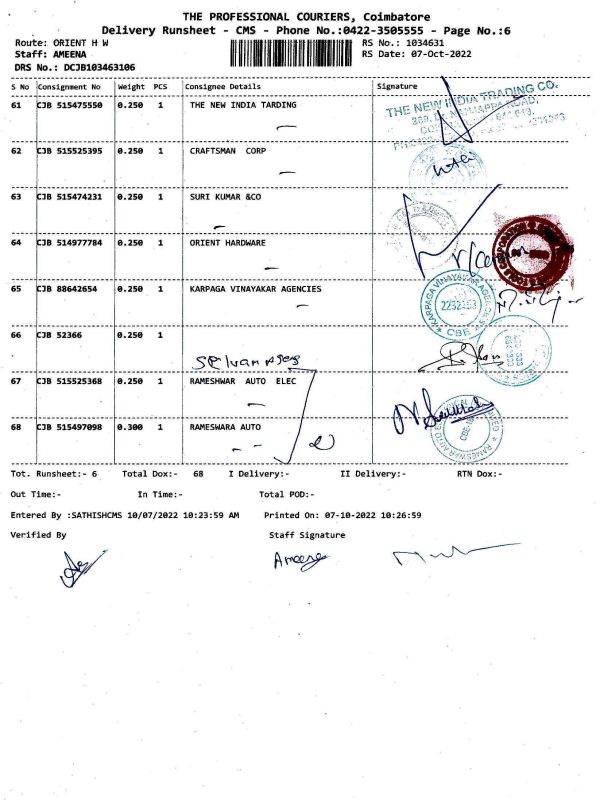 THE PROFESSIONAL COURIERS, Coimbatore
Delivery Runsheet - CMS - Phone No.:0422-3505555 - Page No.:6
Route: ORIENT H W RS No.: 1034631
Staff: AMEENA RS Date: 07-Oct-2022
DRS No.: DCJB103463106
S No Consignment No Weight PCS Consignee Details Signature
61 CJB 515475550 0.250 1 THE NEW INDIA TARDING
THE NEW INDIA TRADING CO.
62 CJB 515525395 0.250 1 CRAFTSMAN CORP
63 CJB 515474231 0.250 1 SURI KUMAR &CO
64 CJB 514977784 0.250 1 ORIENT HARDWARE
65 CJB 88642654 0.250 1 KARPAGA VINAYAKAR AGENCIES
KARPAGA VINAYAKAR AGENCIES
2232353
CBE
66 CJB 52366 0.250 1
67 CJB 515525368 0.250 1 RAMESHWAR AUTO ELEC
68 CJB 515497098 0.300 1 RAMESWARA AUTO
Tot. Runsheet:- 6 Total Dox:- 68 I Delivery:- II Delivery:- RTN Dox:-
Out Time:- In Time:- Total POD:-
Entered By :SATHISHCMS 10/07/2022 10:23:59 AM Printed On: 07-10-2022 10:26:59
Verified By Staff Signature
Ameena